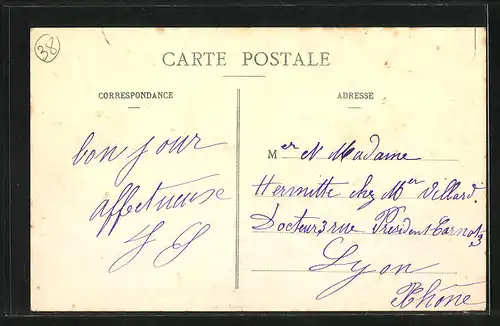 38
CARTE POSTALE
CORRESPONDANCE
ADRESSE
bonjour
affectueux
Mer et Madame
Hermitte chez Mer Villard.
Docteur, 3 rue President Carnot, 3
Lyon
Rhône